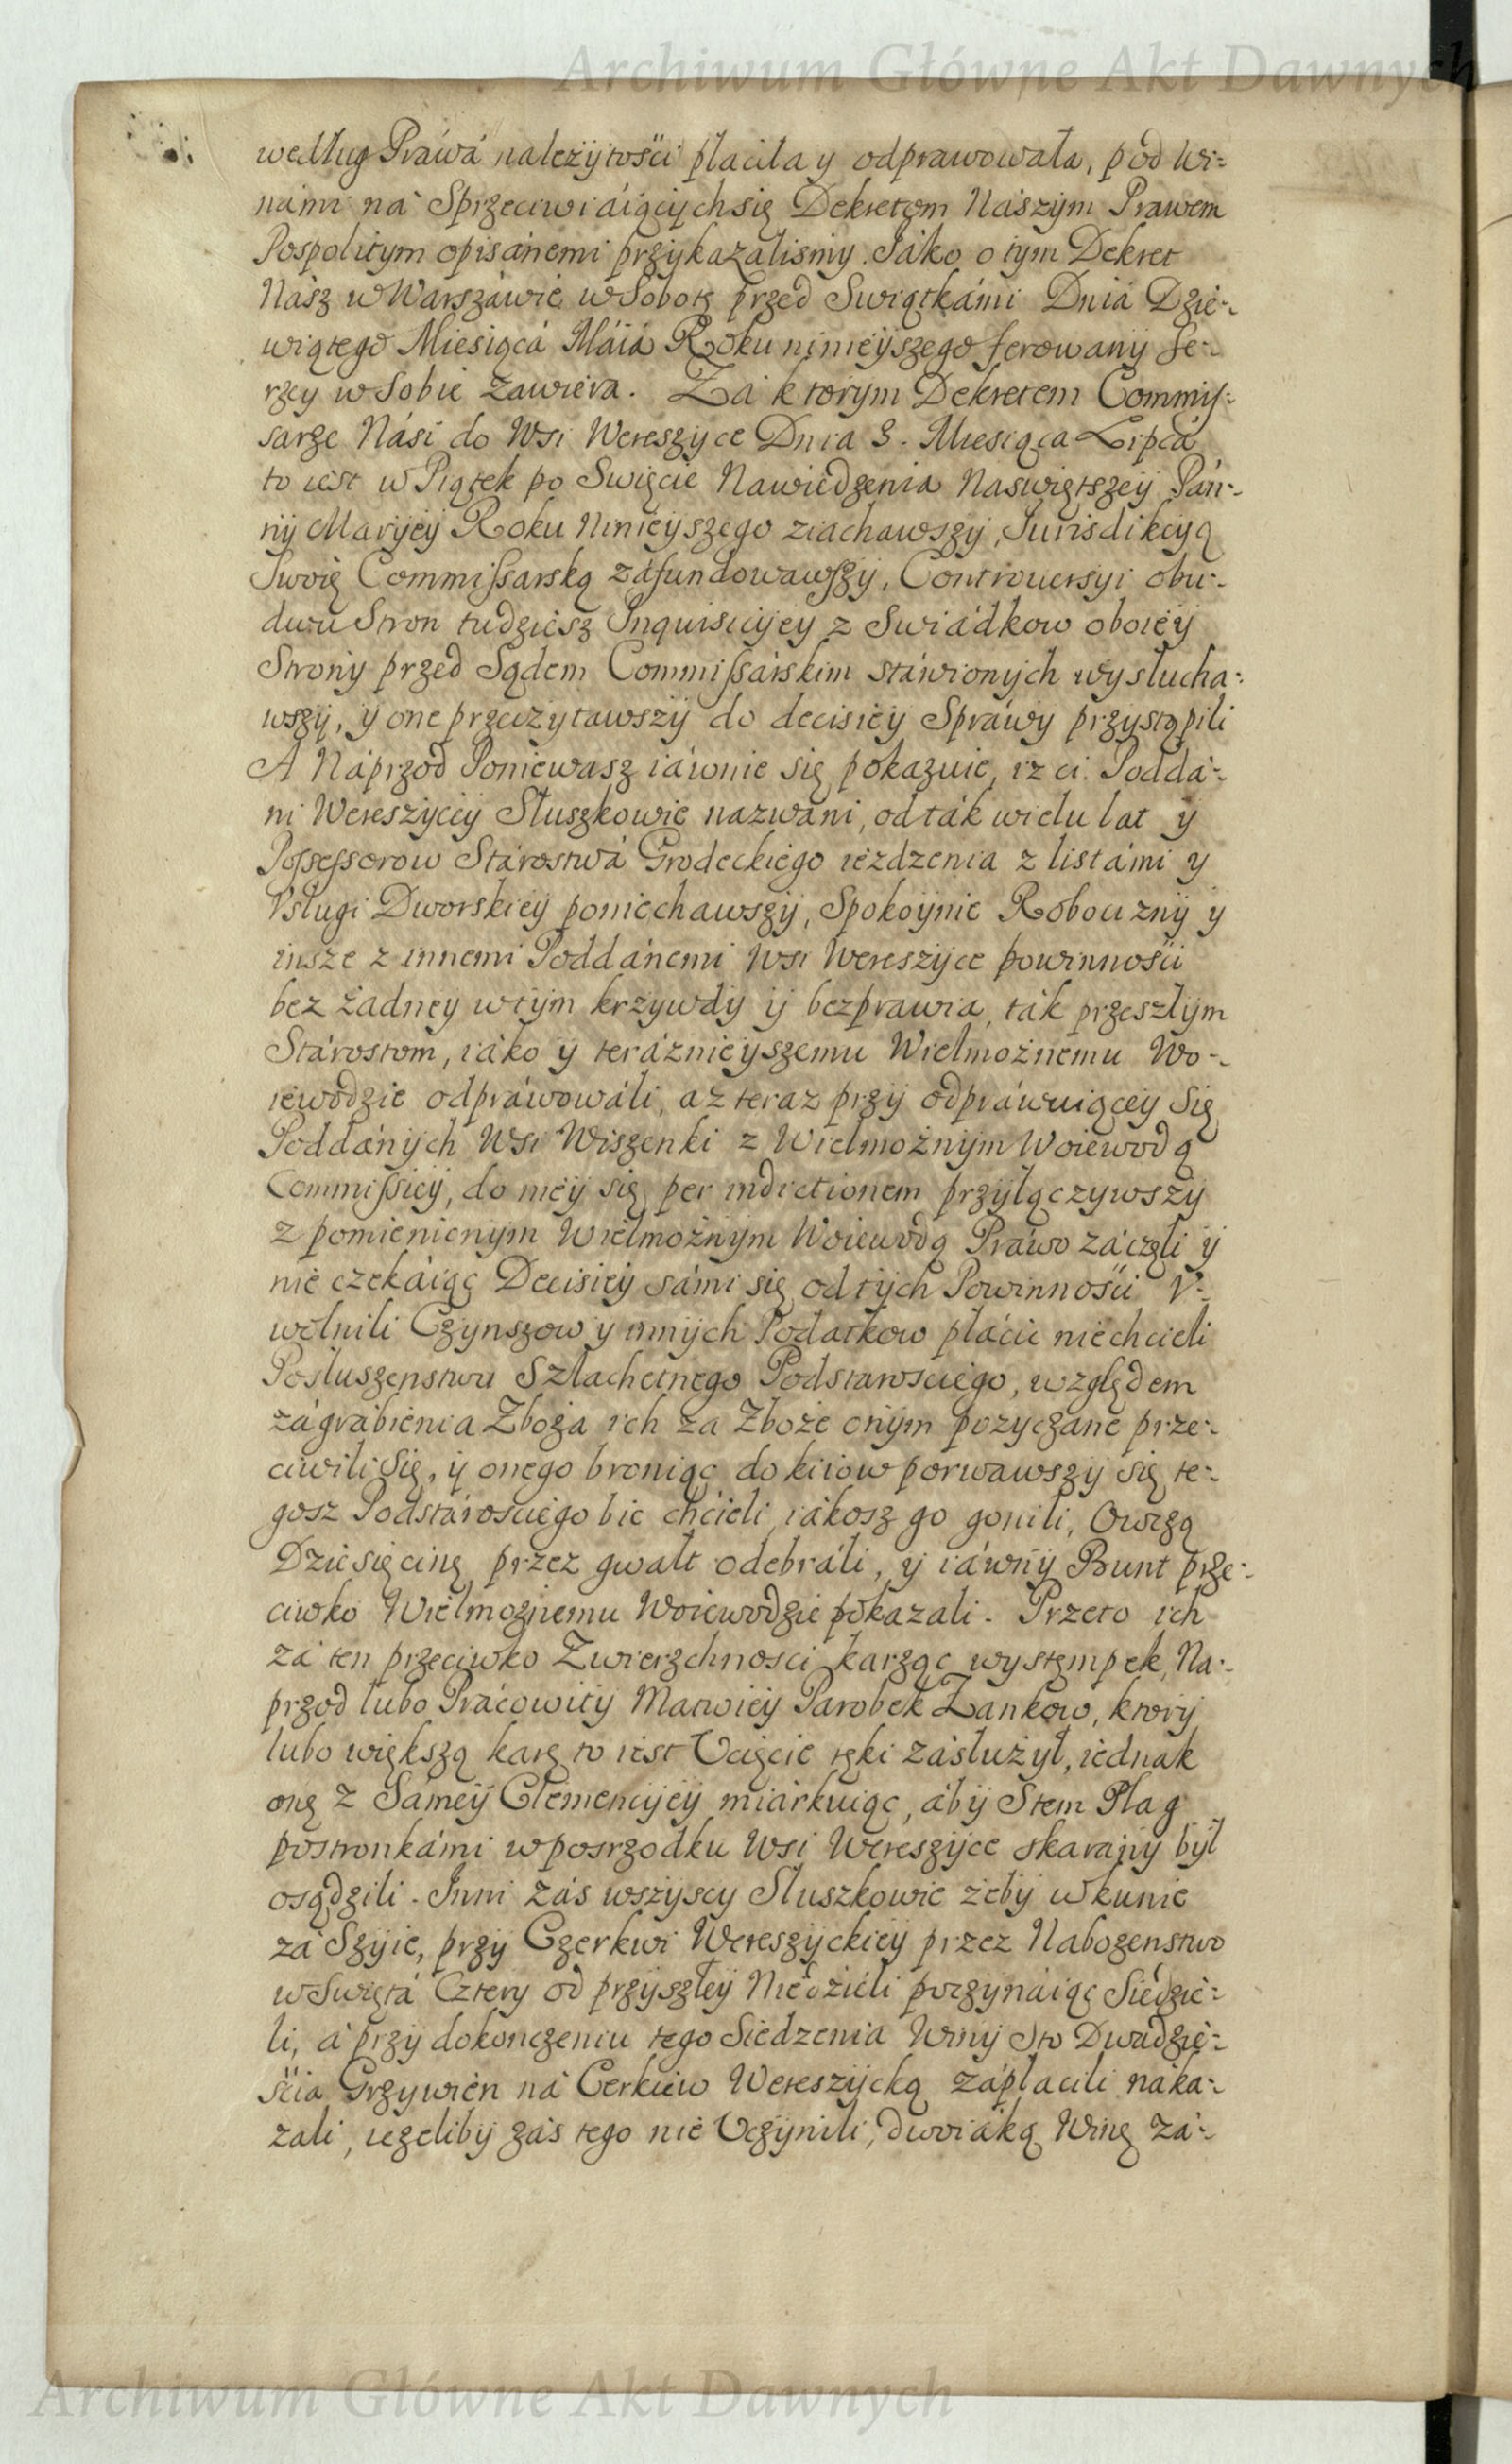 Archiwum Główne Akt Dawnych
według Práwá należytości płaciła y odprawowała, pod wi-
námi ná Sprzeciwiáiących się Dekretom Nászym Prawem
Pospolitym opisánemi przykazalismy. Jáko o tym Dekret
Nász w Warszáwie w Sobotę przed Swiątkámi Dniá Dzie-
wiątego Miesiącá Máiá Roku ninieyszego ferowany sze-
rzey w sobie zawiera. Zá ktorym Dekretem Commis-
sarze Nási do Wsi Wereszyce Dnia 3. Miesiąca Lipcá
to iest w Piątek po Swięcie Nawiedzenia Naswiętszey Pán-
ny Maryey Roku Ninieyszego ziachawszy, Jurisdikcyą
Swoię Commissarską záfundowawszy, Controuersyi obu-
dwu Stron tudziesz Inquisicyey z Swiádkow oboiey
Strony przed Sądem Commissárskim stáwionych wysłucha-
wszy, y one przeczytawszy do decisiey Spráwy przystąpili
A Náprzod Poniewasz iáwnie się pokazuie, iz ci Poddá-
ni Wereszyccy Słuszkowie nazwáni, od ták wielu lat y
Possessorow Stárostwá Grodeckiego iezdzenia z listámi y
Vsługi Dworskiey poniechawszy, Spokoynie Robocizny y
insze z innemi Poddánemi Wsi Wereszyce powinności
bez żadney w tym krzywdy y bezprawia, ták przeszłym
Stárostom, iáko y teráznieyszemu Wielmożnemu Wo-
iewodzie odpráwowáli, az teraz przy odpráwuiącey Się
Poddánych Wsi Wiszenki z Wielmożnym Woiewodą
Commissiey, do niey się per indictionem przyłączywszy
z pomienionym Wielmożnym Woiewodą Práwo záczęli y
nie czekáiąc Decisiey sámi się od tych Powinności V-
wolnili Czynszow y innych Podatkow płácić niechcieli
Posłuszenstwu Szlachetnego Podstarosciego, względem
zágrábienia Zboża ich za Zboże onym pozyczane prze-
ciwili Się, y onego broniąc do kiiow porwawszy się te-
gosz Podstárosciego bic chcieli, iákosz go gonili, Owczą
Dziesięcinę przez gwałt odebráli, y iáwny Bunt prze-
ciwko Wielmoznemu Woiewodzie pokazali. Przeto ich
zá ten przeciwko Zwierzchnosci karząc wystęmpek, Na-
przod lubo Prácowity Matwiey Parobek Zankow, ktory
lubo większą karę to iest Vcięcie ręki zásłużył, iednak
onę z Sámey Clemencyey miárkuiąc, áby Stem Plag
postronkámi w posrzodku Wsi Wereszyce skarany był
osądzili. Inni zás wszyscy Słuszkowie żeby w kunie
zá Szyie, przy Czerkwi Wereszyckiey przez Nabozenstwo
w Swiętá Cztery od przyszłey Niedzieli poczynáiąc Siedzie-
li, á przy dokonczeniu tego Siedzenia Winy Sto Dwadzie-
ścia Grzywien ná Cerkiew Wereszycką zápłacili náka-
zali, iezeliby zás tego nie Vczynili, dwoiáką Winę zá-
Archiwum Główne Akt Dawnych